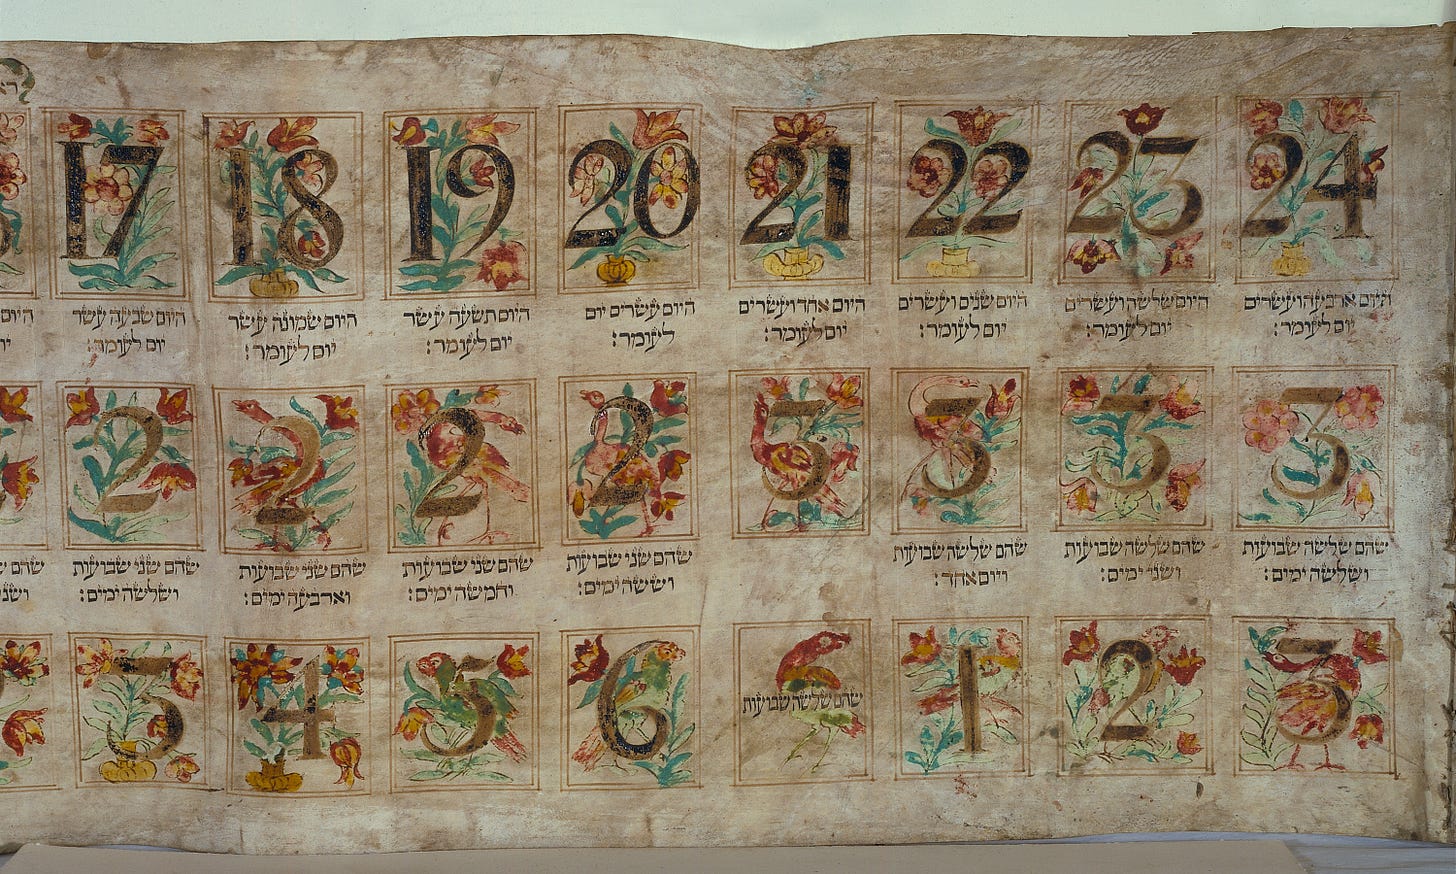 17
18
19
20
21
22
23
24
היום שבעה עשר
יום לעומר:
היום שמונה עשר
יום לעומר:
היום תשעה עשר
יום לעומר:
היום עשרים יום
לעומר:
היום אחד ועשרים
יום לעומר:
היום שנים ועשרים
יום לעומר:
היום שלשה ועשרים
יום לעומר:
היום ארבעה ועשרים
יום לעומר:
2
2
2
2
3
3
3
3
שהם שני שבועות
ושלשה ימים:
שהם שני שבועות
וארבעה ימים:
שהם שני שבועות
וחמשה ימים:
שהם שני שבועות
וששה ימים:
שהם שלשה שבועות
ויום אחד:
שהם שלשה שבועות
ושני ימים:
שהם שלשה שבועות
ושלשה ימים:
3
4
5
6
שהם שלשה שבועות
1
2
3